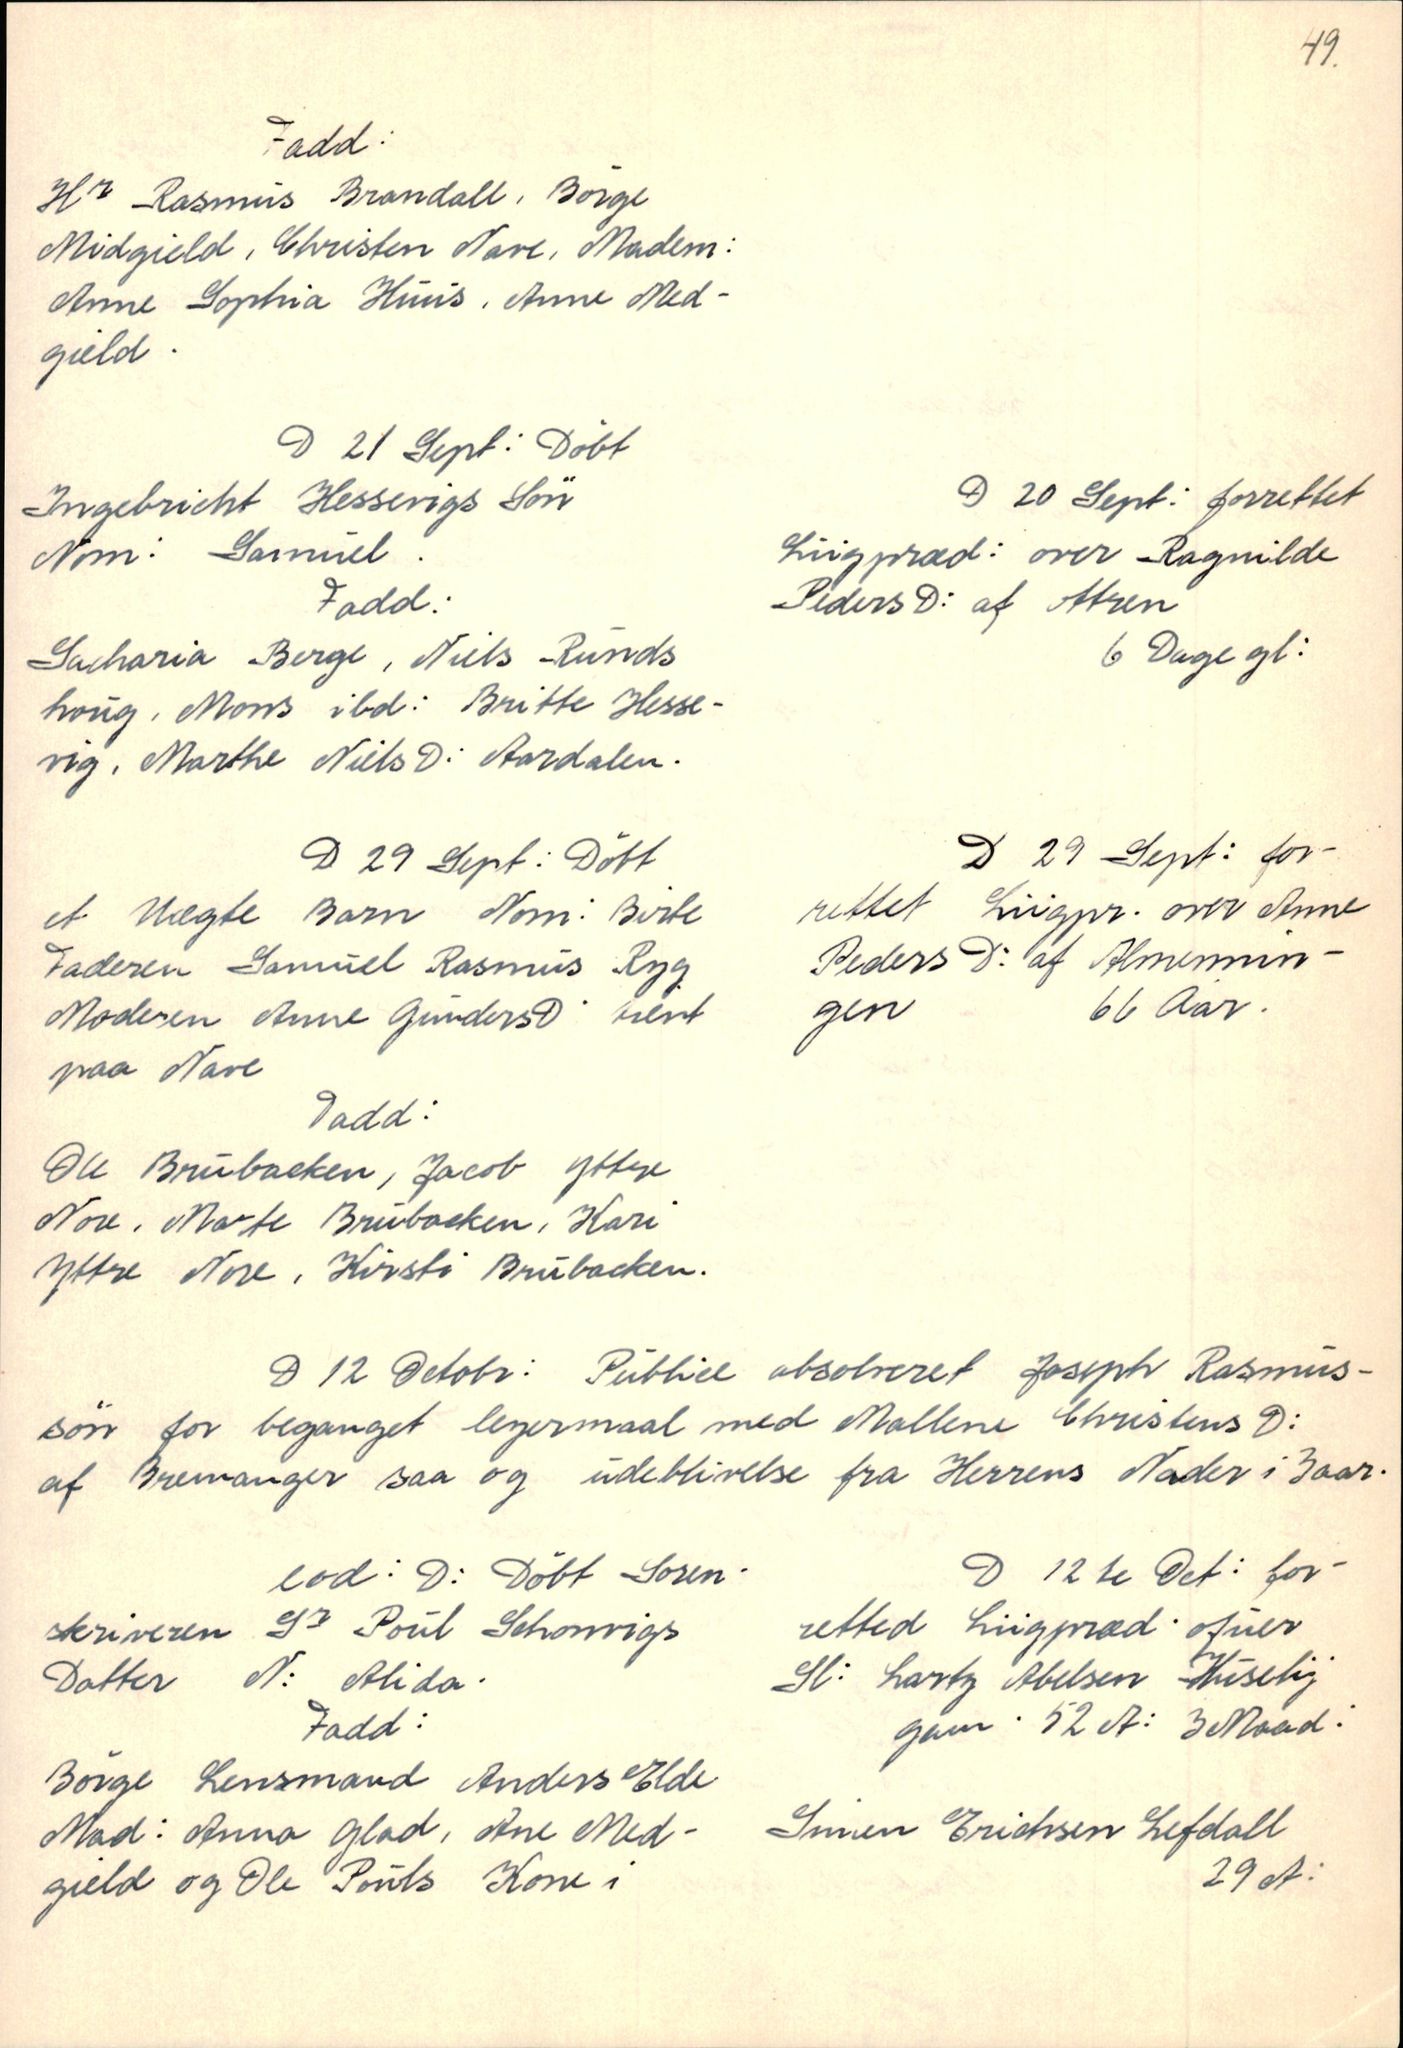 49.
Fadd:
Hr Rasmus Brandall, Börge
Midgield, Christen Nave, Madem:
Anne Sophia Huus, Anne Med-
gield.
D 21 Sept: Döbt
Ingebricht Hessevigs Sön
Nom: Samuel.
Fadd:
Sacharia Berge, Niels Runds
houg, Mons ibd: Britte Hesse-
vig, Marthe Niels D: Aardalen.
D 20 Sept: forrettet
Liigpræd: over Ragnilde
Peders D: af Attren
6 Dage gl:
D 29 Sept: Döbt
et Uægte Barn Nom: Birte
Faderen Samuel Rasmus Ryg
Moderen Anne Gunders D: tient
paa Nave
Fadd:
Ole Brubacken, Jacob Yttre
Nore, Marte Brubacken, Kari
Yttre Nore, Kirsti Brubacken.
D 29 Sept: for-
rettet Liigpr. over Anne
Peders D: af Almennin-
gen 66 Aar.
D 12 Octobr: Publice absolveret Joseph Rasmus-
sön for beganget leyermaal med Mallene Christens D:
af Bremanger saa og udeblivelse fra Herrens Nader i 3 aar.
eod: D: Döbt Soren-
skriveren Sr Poul Schonvigs
Datter N: Alida.
Fadd:
Börge Lensmand Anders Elde
Mad: Anna Glad, Ane Med-
gield og Ole Pouls Kone i
D 12te Oct: for-
retted Liigpræd. ofuer
Sl: Lartz Abelsen Huselij
gam. 52 A: 3 Maad:
Simen Erichsen Lefdall
29 A: